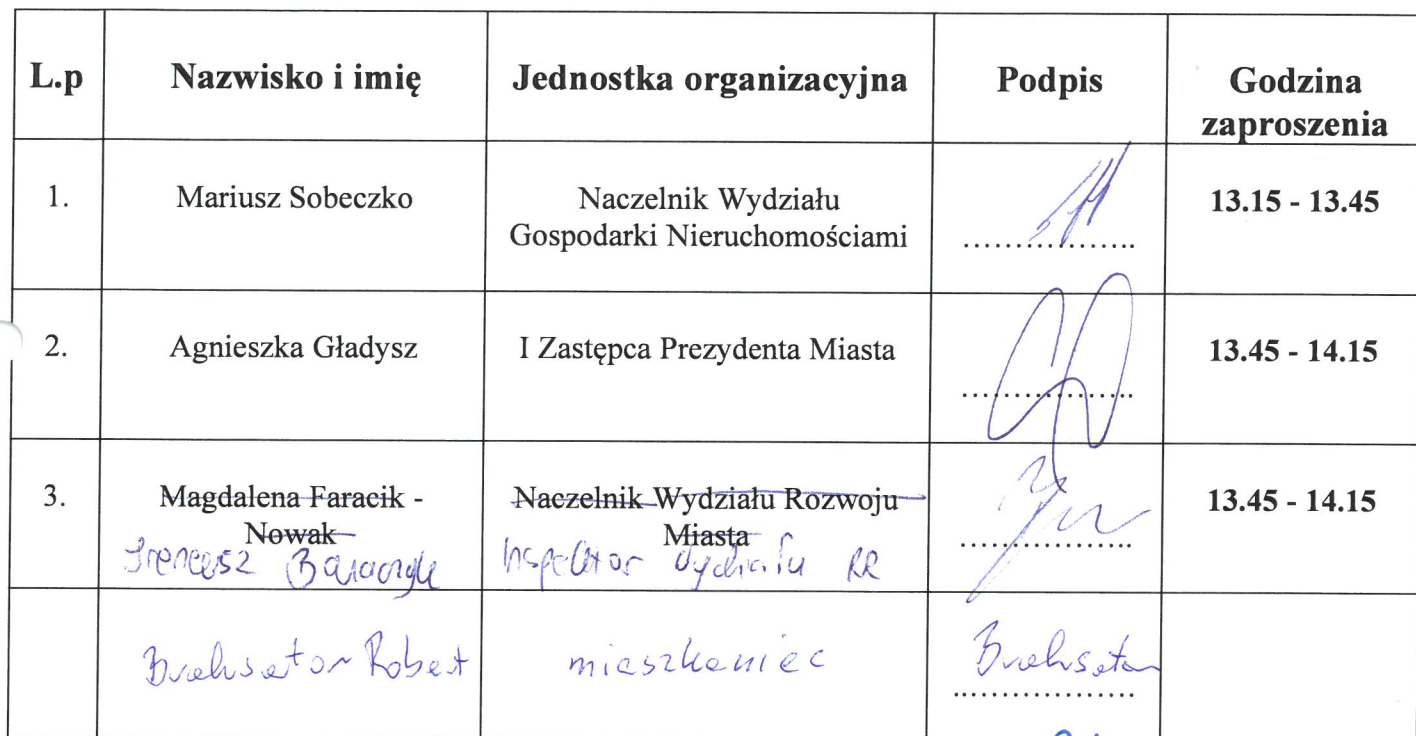 L.p Nazwisko i imię Jednostka organizacyjna Podpis Godzina
zaproszenia
1. Mariusz Sobeczko Naczelnik Wydziału
Gospodarki Nieruchomościami
.................. 13.15 - 13.45
2. Agnieszka Gładysz I Zastępca Prezydenta Miasta .................. 13.45 - 14.15
3. Magdalena Faracik -
Nowak
Ireneusz
Naczelnik Wydziału Rozwoju
Miasta
Inspektor Wydziału RR
.................. 13.45 - 14.15
Robert mieszkaniec ..................